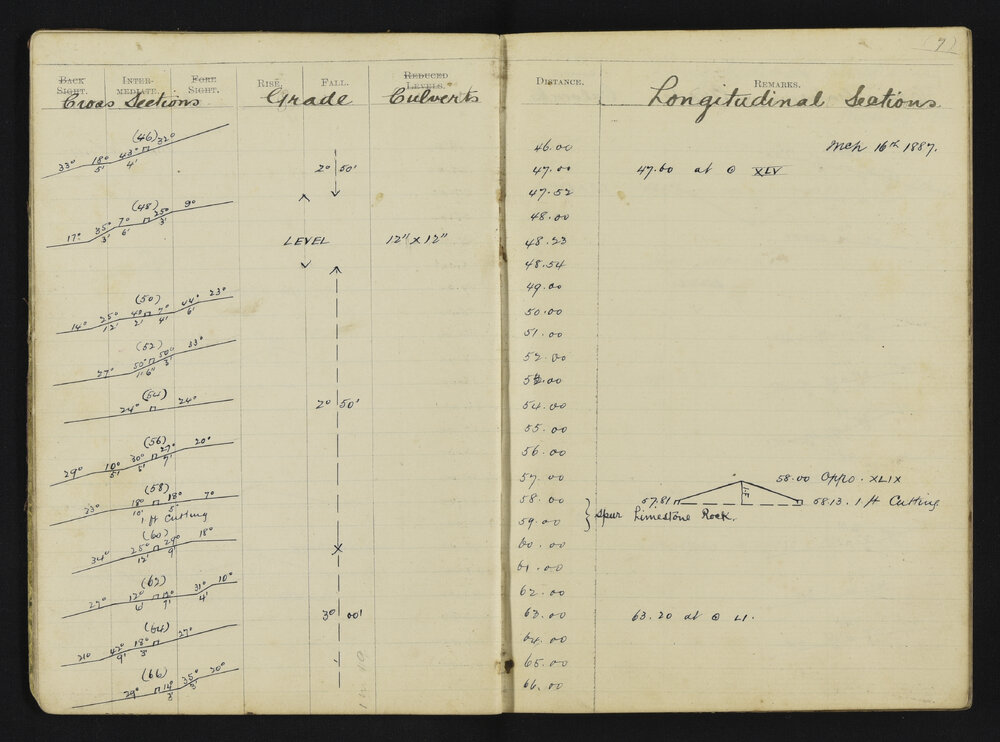 (7)
BACK SIGHT. INTER-MEDIATE. FORE SIGHT. RISE. FALL. REDUCED LEVELS.
Cross Sections Grade Culverts
(46)
33° 18° 43° 32°
5' 4'
2° 50'
(48)
17° 35° 7° 25° 9°
3' 6' 3'
LEVEL 12" X 12"
(50)
14° 25° 40° 7° 44° 23°
12' 2' 4' 6'
(52)
27° 50° 50° 33°
1'6" 3'
(54)
24° 24°
2° 50'
(56)
29° 10° 30° 27° 20°
5' 5' 7'
(58)
23° 18° 18° 7°
10' 5'
1 ft Cutting
(60)
34° 25° 29° 18°
12' 9'
X
(62)
27° 12° 12° 31° 10°
6' 7' 4'
3° 00'
(64)
21° 42° 18° 27°
9' 3'
(66)
29° 14° 35° 20°
8' 5'
DISTANCE. REMARKS.
Longitudinal Sections
46.00 Mch 16th 1887.
47.00 47.60 at ⊙ XLV
47.52
48.00
48.23
48.54
49.00
50.00
51.00
52.00
53.00
54.00
55.00
56.00
57.00 58.00 Oppo. XLIX
58.00 57.81 5.1 58.13. 1 ft Cutting
59.00 Spur Limestone Rock.
60.00
61.00
62.00
63.00 63.20 at ⊙ LI.
64.00
65.00
66.00